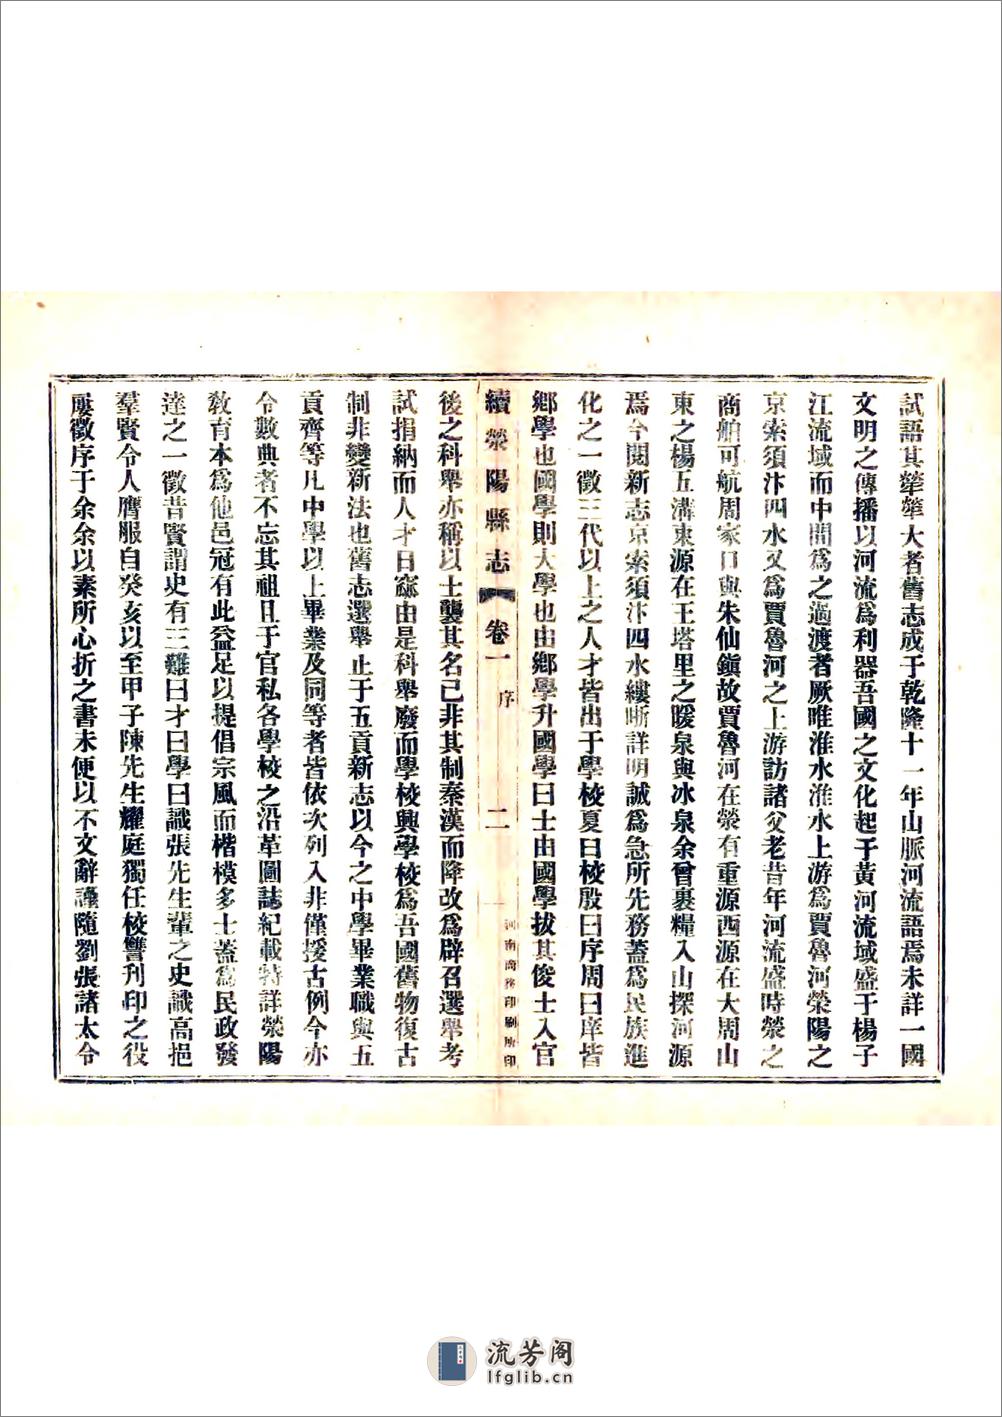 試語其犖犖大者舊志成于乾隆十一年山脈河流語焉未詳一國
文明之傳播以河流爲利器吾國之文化起于黃河流域盛于楊子
江流域而中間爲之過渡者厥唯淮水淮水上游爲賈魯河滎陽之
京索須汴四水又爲賈魯河之上游訪諸父老昔年河流盛時滎之
商舶可航周家口與朱仙鎭故賈魯河在滎有重源西源在大周山
東之楊五溝東源在王塔里之暖泉與冰泉余曾裹糧入山探河源
焉今閱新志京索須汴四水縷晰詳明誠爲急所先務蓋爲民族進
化之一徵三代以上之人才皆出于學校夏曰校殷曰序周曰庠皆
鄉學也國學則大學也由鄉學升國學曰士由國學拔其俊士入官
續滎陽縣志 卷一 序 二 河南商務印刷所印
後之科舉亦稱以士襲其名已非其制秦漢而降改爲辟召選舉考
試捐納而人才日窳由是科舉廢而學校興學校爲吾國舊物復古
制非變新法也舊志選舉止于五貢新志以今之中學畢業職與五
貢齊等凡中學以上畢業及同等者皆依次列入非僅援古例今亦
令數典者不忘其祖且于官私各學校之沿革圖誌紀載特詳滎陽
敎育本爲他邑冠有此益足以提倡宗風而楷模多士蓋爲民政發
達之一徵昔賢謂史有三難曰才曰學曰識張先生輩之史識高挹
羣賢令人膺服自癸亥以至甲子陳先生耀庭獨任校讐刋印之役
屢徵序于余余以素所心折之書未便以不文辭謹隨劉張諸太令
流芳阁
lfglib.cn